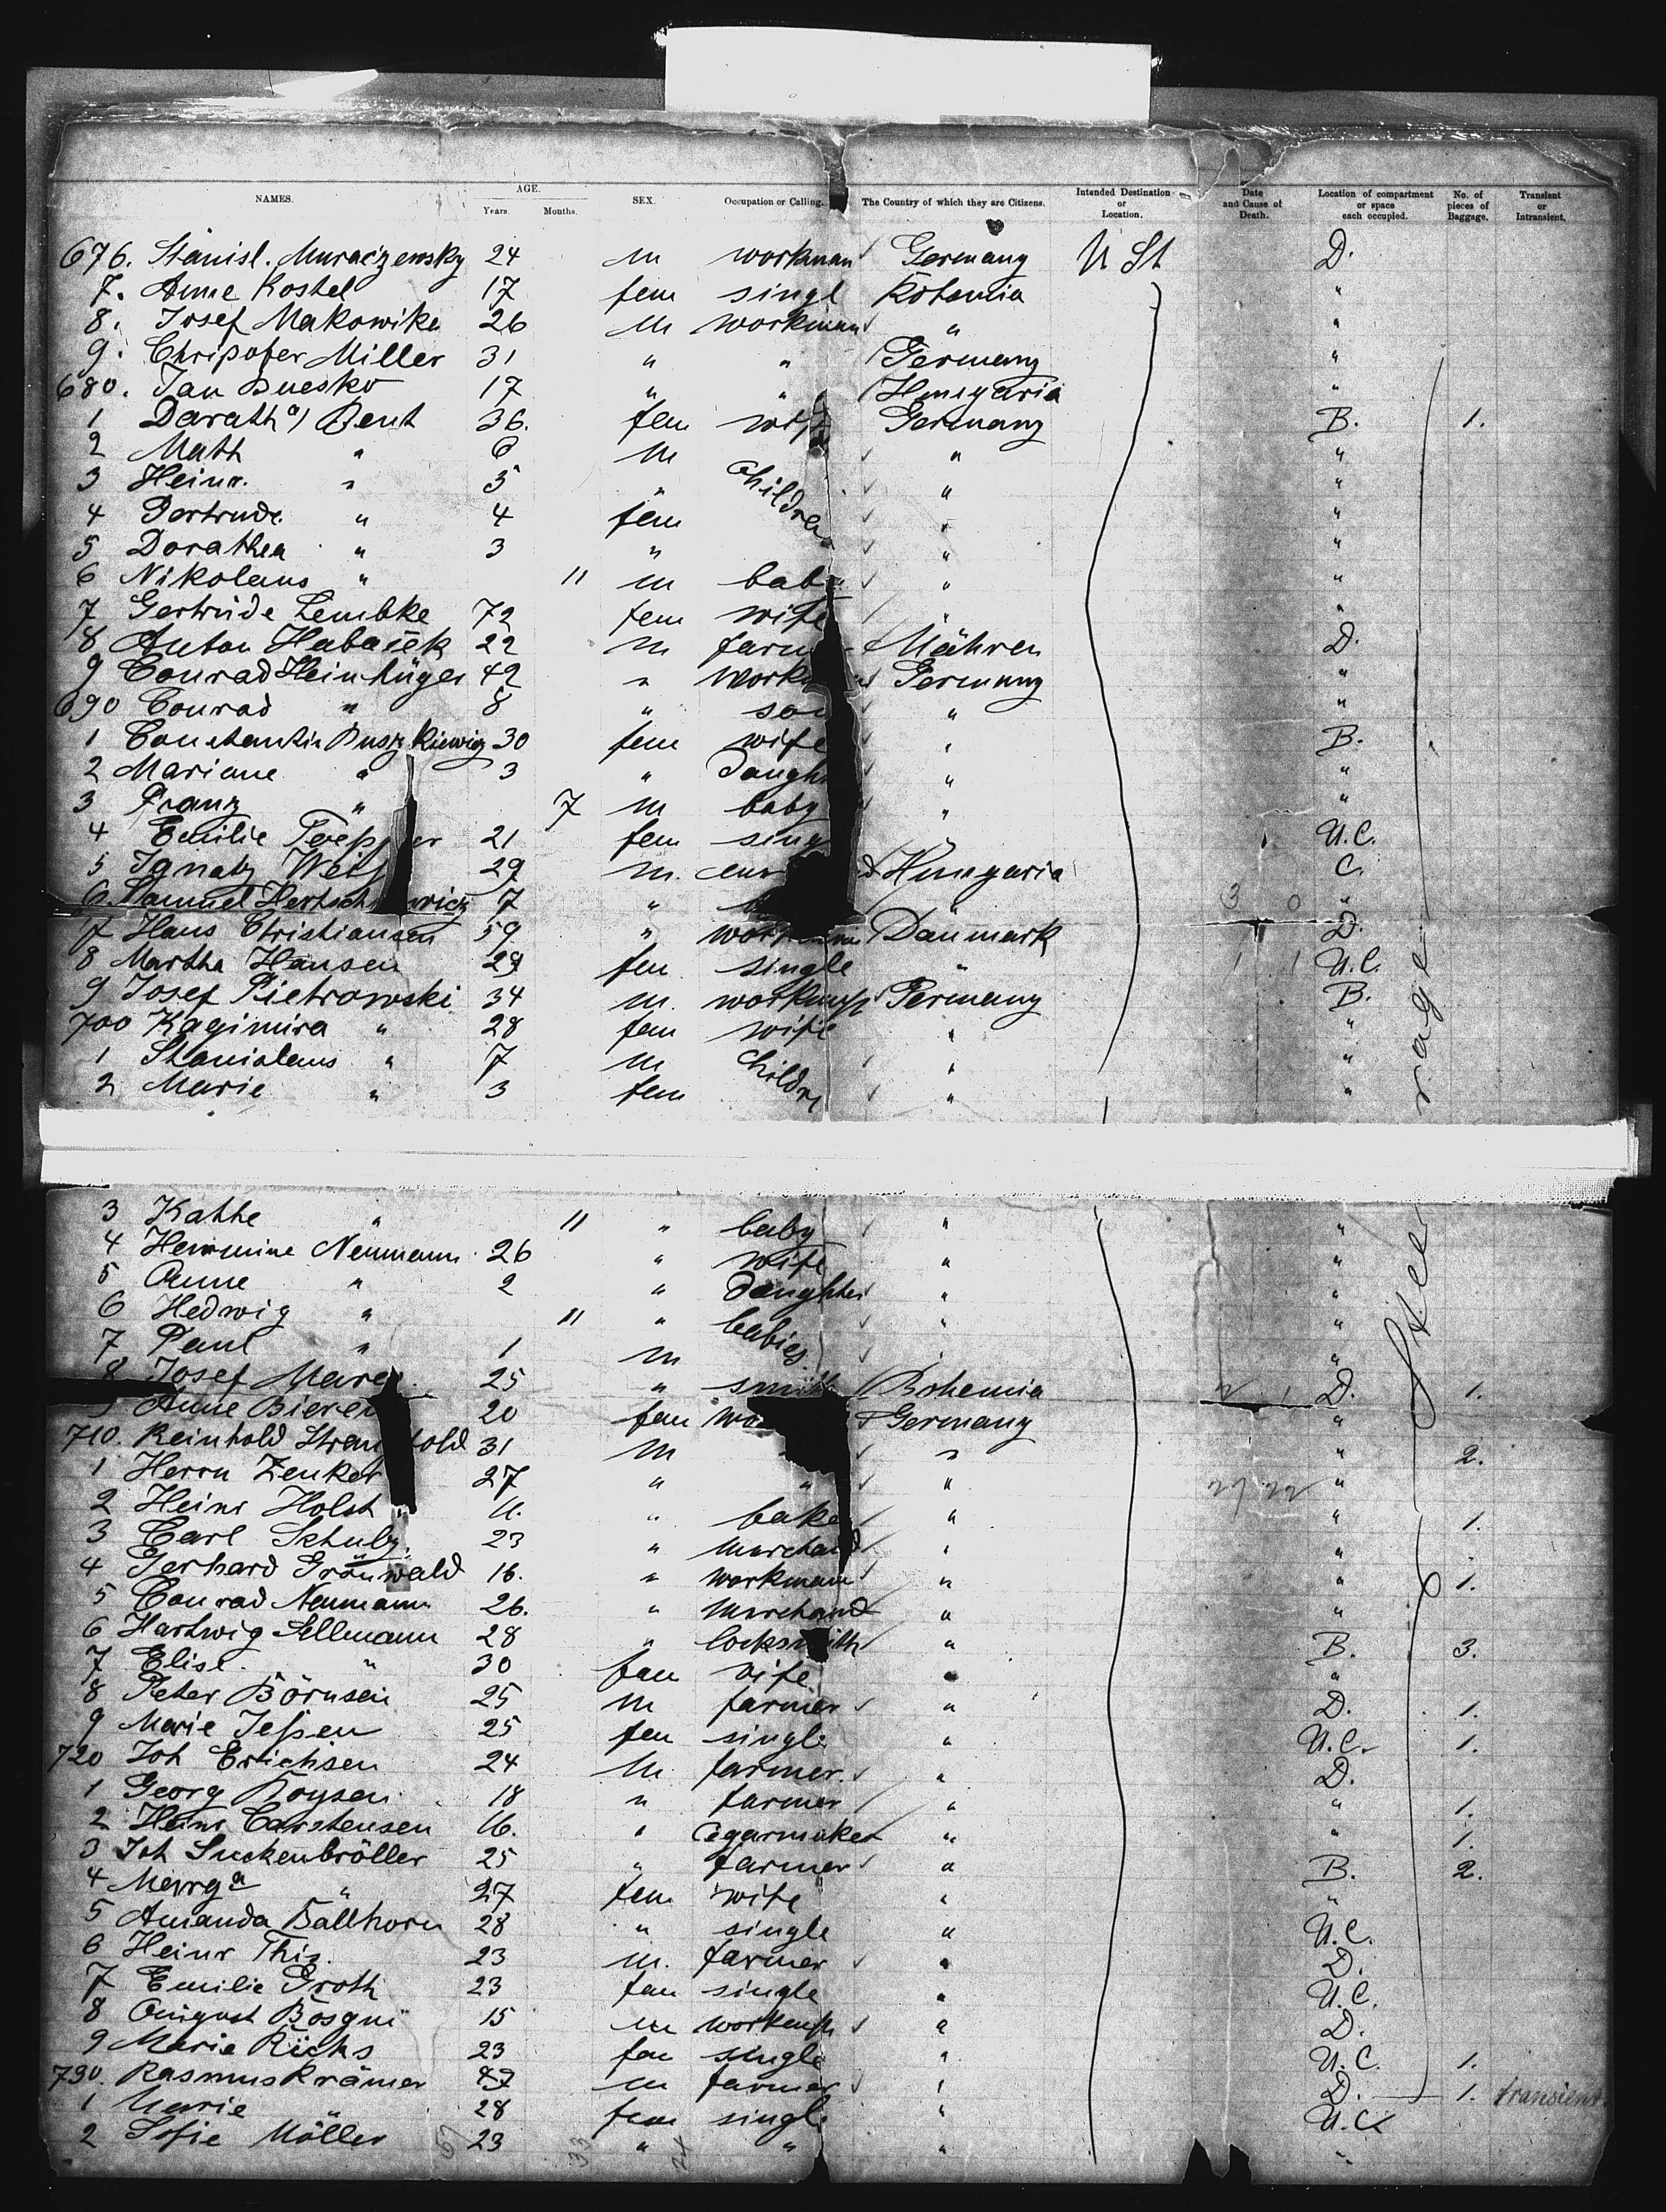 NAMES. AGE. Years. Months. SEX. Occupation or Calling. The Country of which they are Citizens. Intended Destination or Location. Date and Cause of Death. Location of compartment or space each occupied. No. of pieces of Baggage. Transient or Intransient.
676. Stanisl. Muraczewsky 24 m workman Germany U St D.
7. Anne Kostel 17 fem singl "
8. Josef Makowike 26 m workman " "
9. Miller 31 " " Germany "
680. Jan 17 " " Hungaria "
1 Darath a/ Bent 36. fem wife Germany B. 1.
2 Math " 6 m " "
3 Heinr. " 5 " Children " "
4 Gertrude " 4 fem " "
5 Dorathea " 3 " " "
6 Nikolaus " 11 m baby " "
7 Gertrude Lembke 72 fem wife " "
8 Anton Habacek 22 m farm Mähren D.
9 Conrad Heinhüger 42 " work Germany "
690 Conrad " 8 " son " "
1 Constantin Buszkiewig 30 fem wife " B.
2 Mariane " 3 " Daugh " "
3 Franz " 7 m baby " "
4 Emilie 21 fem sing " U.C.
5 Ignatz 29 m. Hungaria C.
6. Samuel 7 " 3 0 "
7 Hans Christiansen 59 " workman Dänmark D.
8 Martha Hansen 29 fem single " 1 1 U.C.
9 Josef Pietrowski 34 m. workman Germany B.
700 Kagimira " 28 fem wife " "
1 Stanislaus " 7 m Childre " "
2 Marie " 3 fem " "
3 Kathe " 11 " baby " "
4 Hermine Neumann 26 " wife " "
5 Anne " 2 " Daughter " "
6 Hedwig " 11 " babies " "
7 Paul " 1 m " "
8 Josef 25 " smith Bohemia D. 1.
9 Anne 20 fem wo Germany "
710. Reinhold 31 m " " 2.
1 Herm Zenker 27 " " " "
2 Heinr Holst 16. " bake " " 1.
3 Carl Schulz. 23 " Marchand " "
4 Gerhard Grönwald 16. " workman " " 1.
5 Conrad Neumann 26. " Marchand " "
6 Hartwig Sellmann 28 " locksmith " B. 3.
7 Elise " 30 fem wife " "
8 Peter Börnsen 25 m farmer " D. 1.
9 Marie Jessen 25 fem single " U.C. 1.
720 Joh Erichsen 24 m farmer " D.
1 Georg Boysen 18 " farmer " " 1.
2 Heinr Carstensen 16. " Cigarmaker " " 1.
3 Joh Suckenbröller 25 " farmer " B. 2.
4 Marg a " 27 fem wife " "
5 Amanda Ballhorn 28 " single " U.C.
6 Heinr 23 m. farmer " D.
7 Emilie Groth 23 fem single " U.C.
8 August 15 m workman " D.
9 Marie 23 fem single " U.C. 1.
730. Rasmus Krämer 47 m farmer " D. 1. transient
1 Marie " 28 fem single " U.C.
2 Sofie Möller 23 " " " "
Steerage